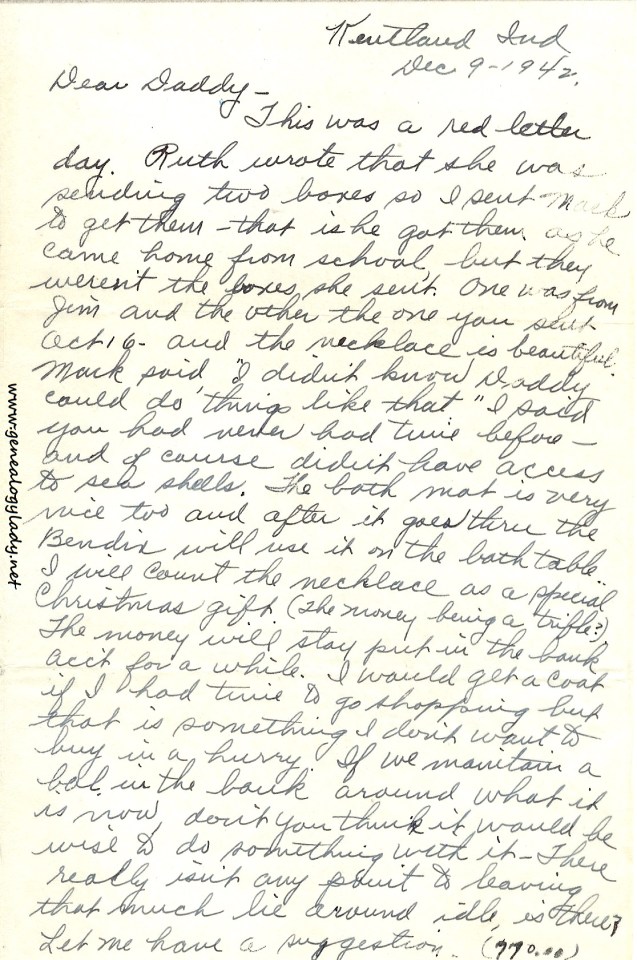 Kentland Ind
Dec 9-1942.
Dear Daddy-
This was a red letter
day. Ruth wrote that she was
sending two boxes so I sent Mark
to get them - that is he got them as he
came home from school, but they
weren't the boxes she sent. One was from
Jim and the other the one you sent
Oct 16- and the necklace is beautiful.
Mark said "I didn't know Daddy
could do things like that" I said
you had never had time before-
and of course didn't have access
to sea shells. The bath mat is very
nice too and after it goes thru the
Bendix will use it on the bath table.
I will count the necklace as a special
Christmas gift (the money being a trifle?)
The money will stay put in the bank
acct for a while. I would get a coat
if I had time to go shopping but
that is something I don't want to
buy in a hurry. If we maintain a
bal. in the bank around what it
is now, don't you think it would be
wise to do something with it - There
really isn't any point to leaving
that much lie around idle, is there?
Let me have a suggestion. (770.00)
www.genealogylady.net